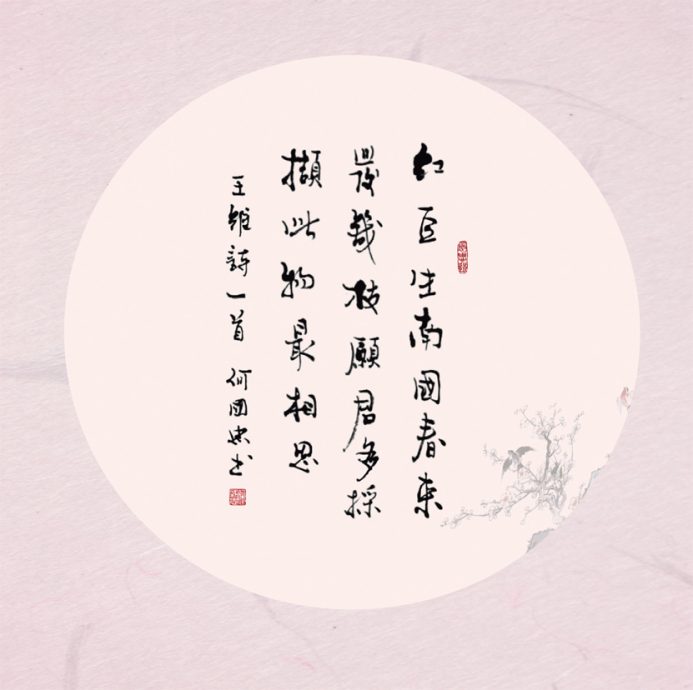 紅豆生南國春來
發幾枝願君多採
擷此物最相思
王維詩一首 何國忠书